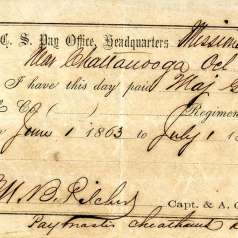 C. S. Pay Office, Headquarters Missione
Near Chattanooga Oct
I have this day paid Maj
Co ( ) Regimen
June 1 1863 to July 1
M. B. Pilcher
Capt. & A. Q
Paymaster Cheathams